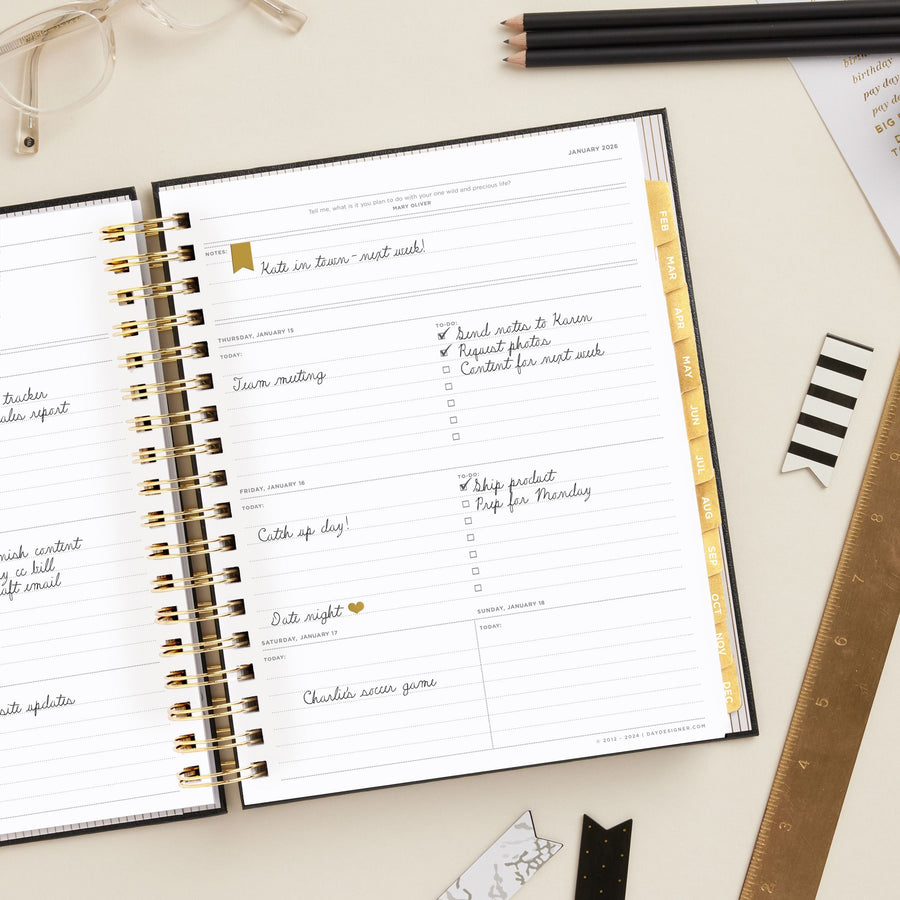 tracker
sales report
content
cc bill
email
site updates
JANUARY 2026
Tell me, what is it you plan to do with your one wild and precious life?
MARY OLIVER
NOTES:
Kate in town - next week!
THURSDAY, JANUARY 15
TODAY:
Team meeting
TO-DO:
Send notes to Karen
Request photos
Content for next week
FRIDAY, JANUARY 16
TODAY:
Catch up day!
Date night
TO-DO:
Ship product
Prep for Monday
SATURDAY, JANUARY 17
TODAY:
Charlie's soccer game
SUNDAY, JANUARY 18
TODAY:
© 2012 - 2024 | DAYDESIGNER.COM
FEB
MAR
APR
MAY
JUN
JUL
AUG
SEP
OCT
NOV
DEC
birthday
birthday
pay day
pay day
BIG
9
8
7
6
5
4
3
2